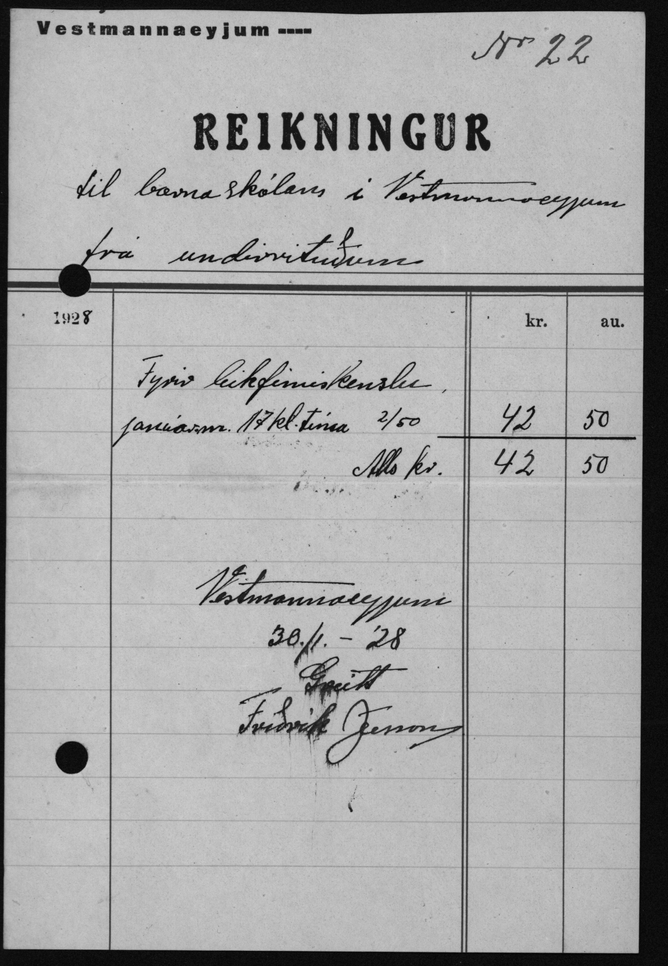 Vestmannaeyjum ----
Nr 22
REIKNINGUR
til barnaskólans í Vestmannaeyjum
frá undirrituðum
1928 kr. au.
Fyrir leikfimiskenslu,
janúarm. 17 kl. tíma 2/50 42 50
Alls kr. 42 50
Vestmannaeyjum
30./1. - '28
Greitt
Friðrik Jesson